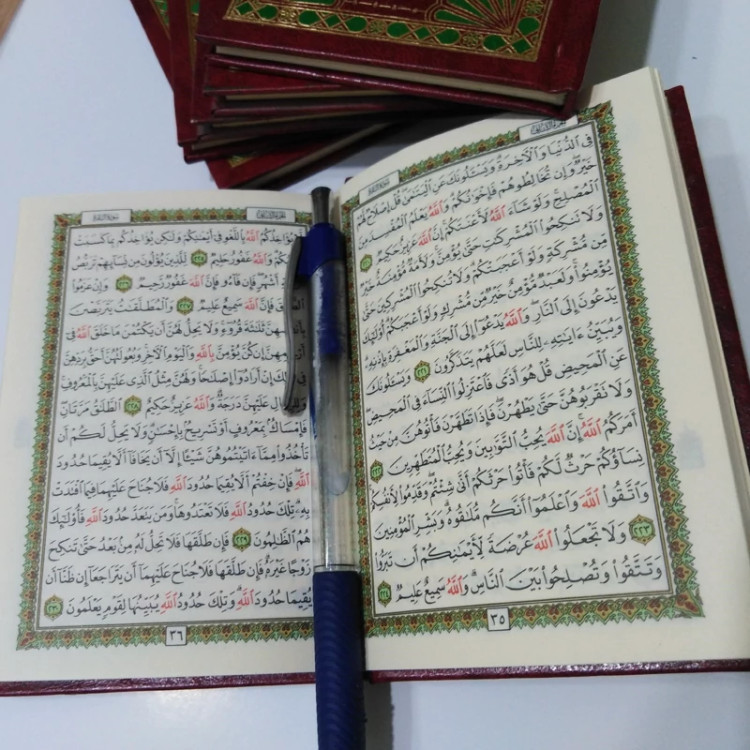 سورة البقرة
فِي الدُّنْيَا وَالْآخِرَةِ وَيَسْأَلُونَكَ عَنِ الْيَتَامَىٰ قُلْ إِصْلَاحٌ لَّهُمْ
خَيْرٌ وَإِن تُخَالِطُوهُمْ فَإِخْوَانُكُمْ وَاللَّهُ يَعْلَمُ الْمُفْسِدَ مِنَ
الْمُصْلِحِ وَلَوْ شَاءَ اللَّهُ لَأَعْنَتَكُمْ إِنَّ اللَّهَ عَزِيزٌ حَكِيمٌ
وَلَا تَنكِحُوا الْمُشْرِكَاتِ حَتَّىٰ يُؤْمِنَّ وَلَأَمَةٌ مُّؤْمِنَةٌ خَيْرٌ
مِّن مُّشْرِكَةٍ وَلَوْ أَعْجَبَتْكُمْ وَلَا تُنكِحُوا الْمُشْرِكِينَ حَتَّىٰ
يُؤْمِنُوا وَلَعَبْدٌ مُّؤْمِنٌ خَيْرٌ مِّن مُّشْرِكٍ وَلَوْ أَعْجَبَكُمْ أُولَٰئِكَ
يَدْعُونَ إِلَى النَّارِ وَاللَّهُ يَدْعُو إِلَى الْجَنَّةِ وَالْمَغْفِرَةِ بِإِذْنِهِ
وَيُبَيِّنُ آيَاتِهِ لِلنَّاسِ لَعَلَّهُمْ يَتَذَكَّرُونَ ٢٢١ وَيَسْأَلُونَكَ
عَنِ الْمَحِيضِ قُلْ هُوَ أَذًى فَاعْتَزِلُوا النِّسَاءَ فِي الْمَحِيضِ
وَلَا تَقْرَبُوهُنَّ حَتَّىٰ يَطْهُرْنَ فَإِذَا تَطَهَّرْنَ فَأْتُوهُنَّ مِنْ حَيْثُ
أَمَرَكُمُ اللَّهُ إِنَّ اللَّهَ يُحِبُّ التَّوَّابِينَ وَيُحِبُّ الْمُتَطَهِّرِينَ ٢٢٢
نِسَاؤُكُمْ حَرْثٌ لَّكُمْ فَأْتُوا حَرْثَكُمْ أَنَّىٰ شِئْتُمْ وَقَدِّمُوا لِأَنفُسِكُمْ
وَاتَّقُوا اللَّهَ وَاعْلَمُوا أَنَّكُم مُّلَاقُوهُ وَبَشِّرِ الْمُؤْمِنِينَ
٢٢٣ وَلَا تَجْعَلُوا اللَّهَ عُرْضَةً لِّأَيْمَانِكُمْ أَن تَبَرُّوا
وَتَتَّقُوا وَتُصْلِحُوا بَيْنَ النَّاسِ وَاللَّهُ سَمِيعٌ عَلِيمٌ ٢٢٤
٣٥
سورة البقرة
يُؤَاخِذُكُمُ اللَّهُ بِاللَّغْوِ فِي أَيْمَانِكُمْ وَلَٰكِن يُؤَاخِذُكُم بِمَا كَسَبَتْ
وَاللَّهُ غَفُورٌ حَلِيمٌ ٢٢٥ لِّلَّذِينَ يُؤْلُونَ مِن نِّسَائِهِمْ تَرَبُّصُ
أَشْهُرٍ فَإِن فَاءُوا فَإِنَّ اللَّهَ غَفُورٌ رَّحِيمٌ ٢٢٦ وَإِنْ عَزَمُوا
فَإِنَّ اللَّهَ سَمِيعٌ عَلِيمٌ ٢٢٧ وَالْمُطَلَّقَاتُ يَتَرَبَّصْنَ
ثَلَاثَةَ قُرُوءٍ وَلَا يَحِلُّ لَهُنَّ أَن يَكْتُمْنَ مَا خَلَقَ اللَّهُ فِي
إِن كُنَّ يُؤْمِنَّ بِاللَّهِ وَالْيَوْمِ الْآخِرِ وَبُعُولَتُهُنَّ أَحَقُّ بِرَدِّهِنَّ
إِنْ أَرَادُوا إِصْلَاحًا وَلَهُنَّ مِثْلُ الَّذِي عَلَيْهِنَّ بِالْمَعْرُوفِ
عَلَيْهِنَّ دَرَجَةٌ وَاللَّهُ عَزِيزٌ حَكِيمٌ ٢٢٨ الطَّلَاقُ مَرَّتَانِ
فَإِمْسَاكٌ بِمَعْرُوفٍ أَوْ تَسْرِيحٌ بِإِحْسَانٍ وَلَا يَحِلُّ لَكُمْ أَن
تَأْخُذُوا مِمَّا آتَيْتُمُوهُنَّ شَيْئًا إِلَّا أَن يَخَافَا أَلَّا يُقِيمَا حُدُودَ
اللَّهِ فَإِنْ خِفْتُمْ أَلَّا يُقِيمَا حُدُودَ اللَّهِ فَلَا جُنَاحَ عَلَيْهِمَا فِيمَا افْتَدَتْ
بِهِ تِلْكَ حُدُودُ اللَّهِ فَلَا تَعْتَدُوهَا وَمَن يَتَعَدَّ حُدُودَ اللَّهِ فَأُولَٰئِكَ
هُمُ الظَّالِمُونَ ٢٢٩ فَإِن طَلَّقَهَا فَلَا تَحِلُّ لَهُ مِن بَعْدُ حَتَّىٰ تَنكِحَ
زَوْجًا غَيْرَهُ فَإِن طَلَّقَهَا فَلَا جُنَاحَ عَلَيْهِمَا أَن يَتَرَاجَعَا إِن ظَنَّا أَن
يُقِيمَا حُدُودَ اللَّهِ وَتِلْكَ حُدُودُ اللَّهِ يُبَيِّنُهَا لِقَوْمٍ يَعْلَمُونَ ٢٣٠
٣٦